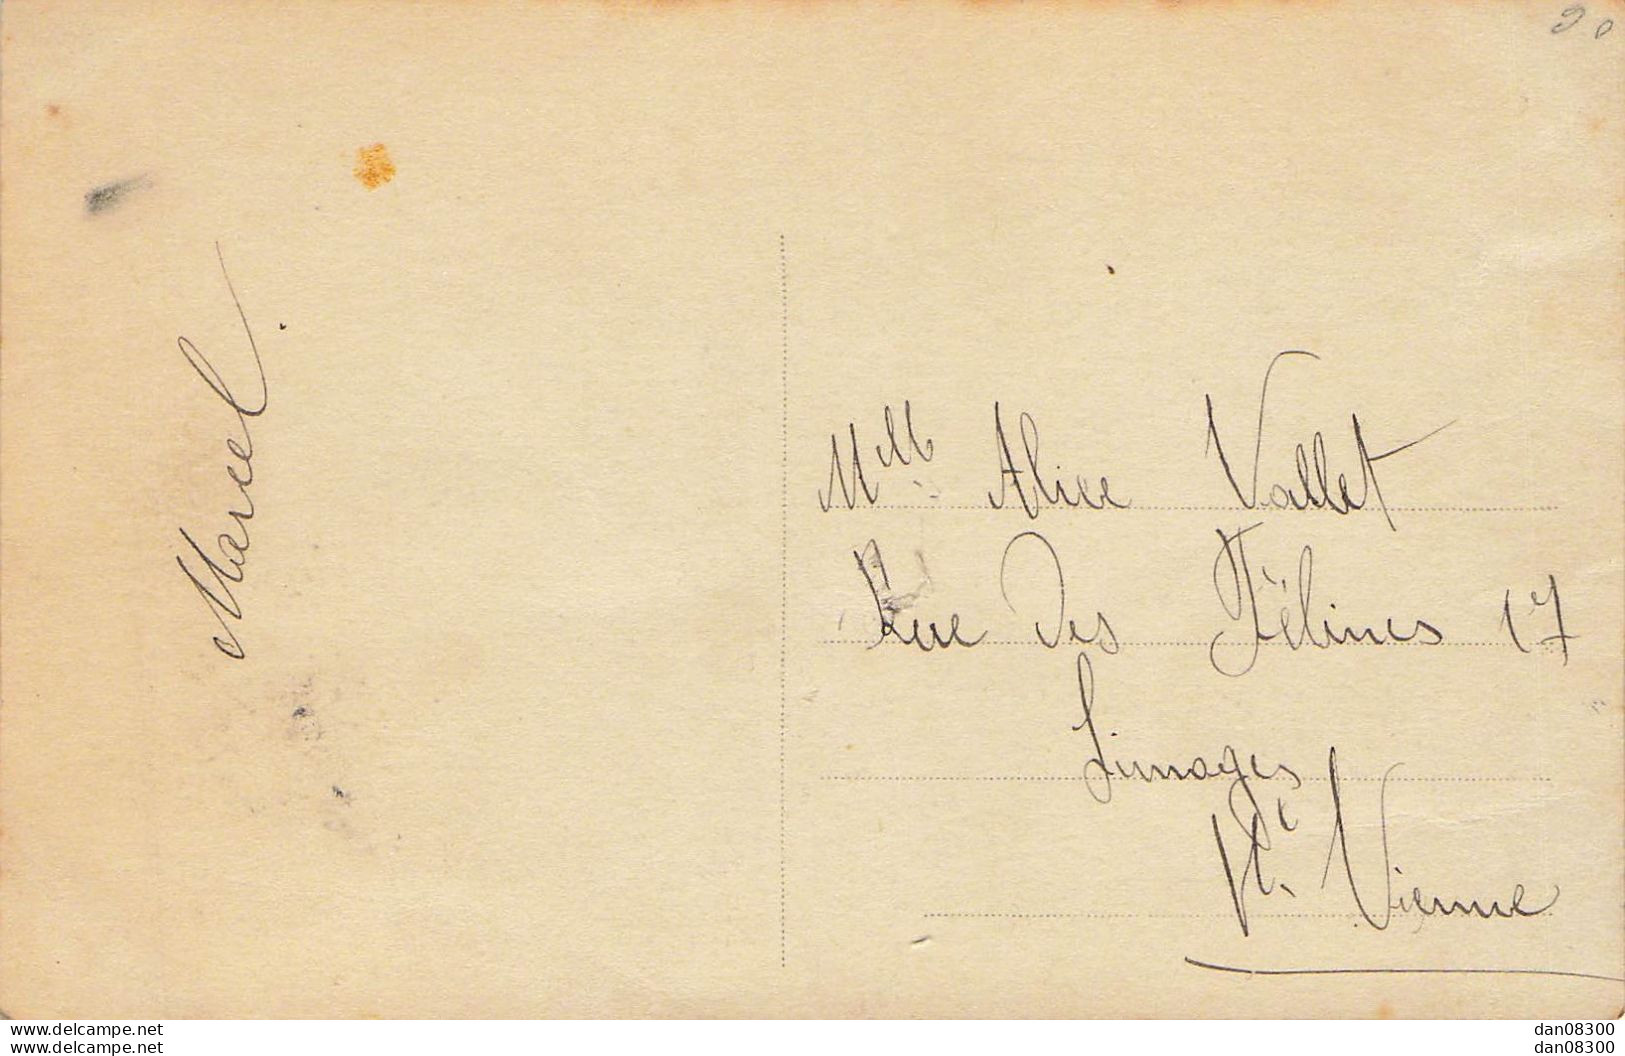 Marcel.
Mlle Alice Vallet
Rue Des Félines 17
Limoges
Hte. Vienne
www.delcampe.net
www.delcampe.net
dan08300
dan08300